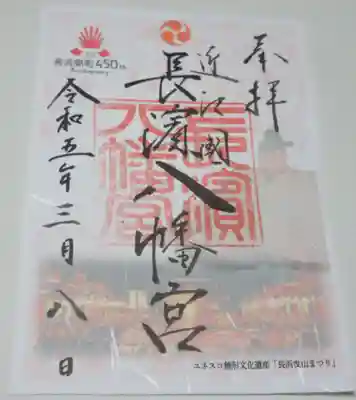 奉拝
近江國
長濱八幡宮
令和五年三月八日
長浜開町450th
Anniversary
長濱八幡宮
ユネスコ無形文化遺産「長浜曳山まつり」